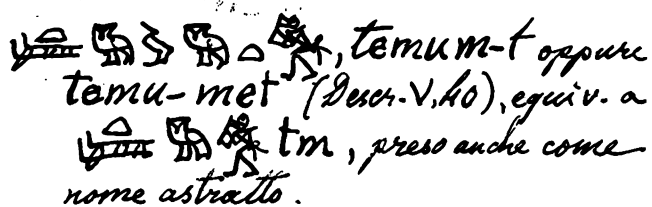 , temum-t oppure
temu-met (Descr. V, 40), equiv. a
tm, preso anche come
nome astratto.